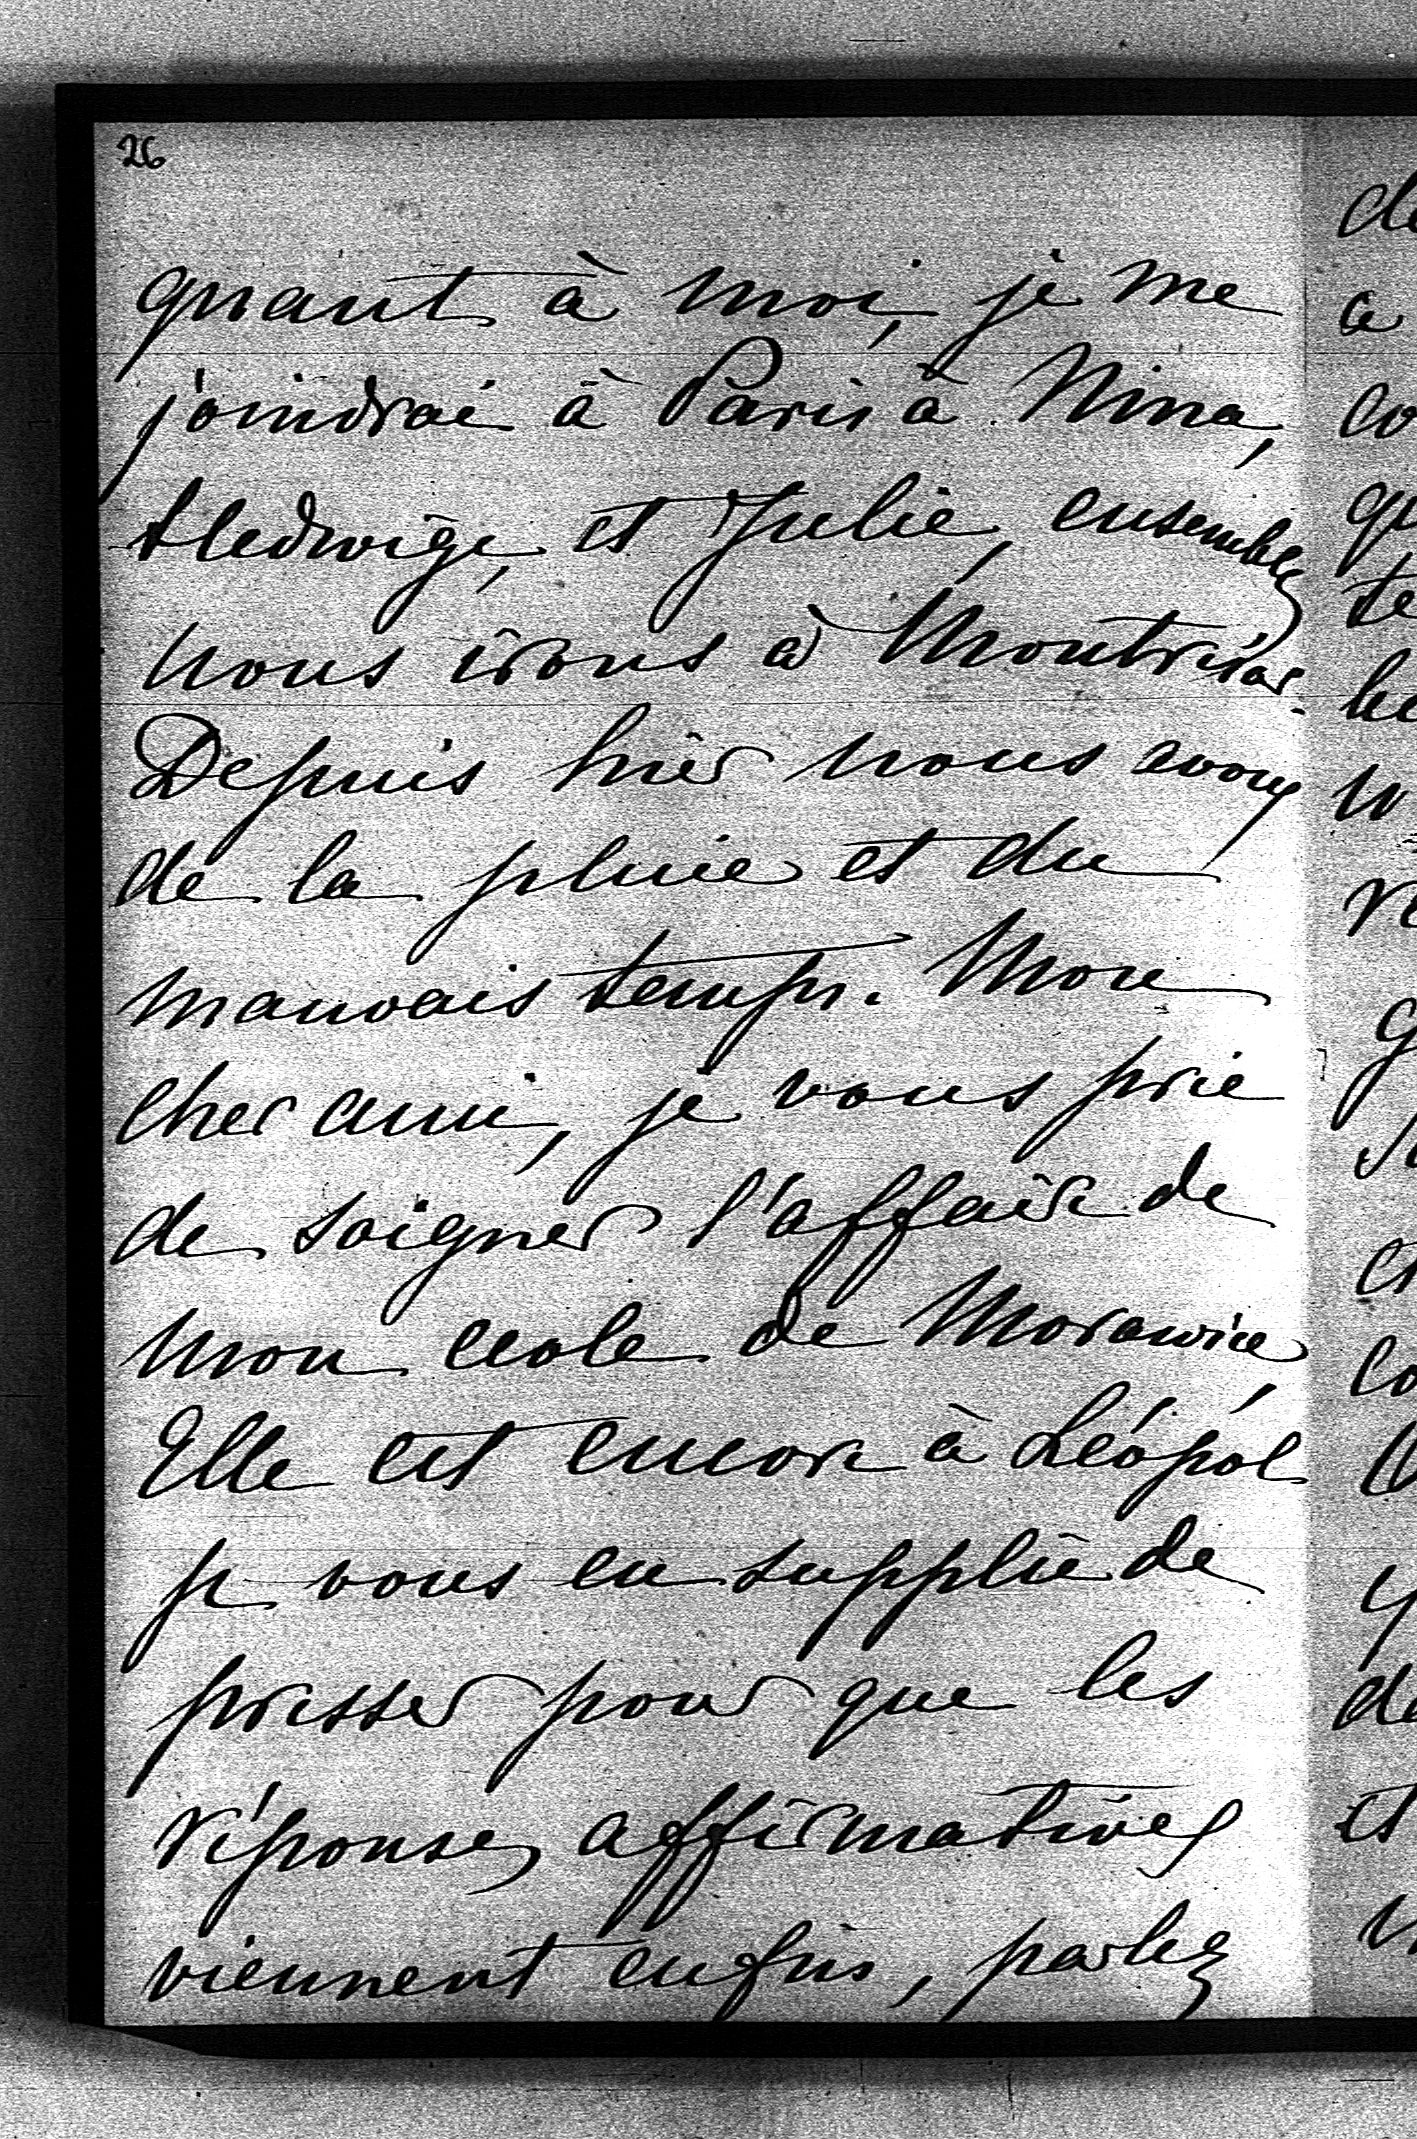 26
quant à moi, je me
joindrai à Paris à Nina,
Hedwige, et Julie, ensemble
nous irons à Montrésor.
Depuis hier nous avons
de la pluie et du
mauvais temps. Mon
cher ami, je vous prie
de soigner l'affaire de
mon ecole de Morawice
Elle est encore à Léópol
je vous en supplie de
presser pour que les
réponses affirmatives
viennent enfin, parlez